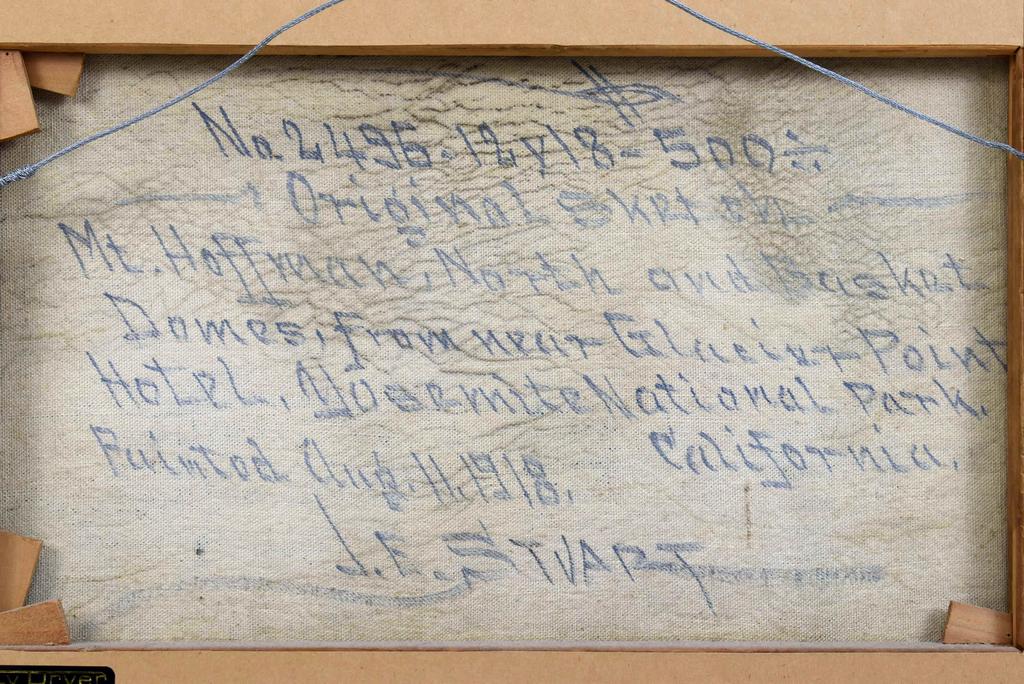 No. 2496-12x18-500÷
Original Sketch
Mt. Hoffman, North and Basket
Domes, from near Glacier Point
Hotel, Yosemite National Park,
California.
Painted Aug. 11, 1918.
J.E. STVART